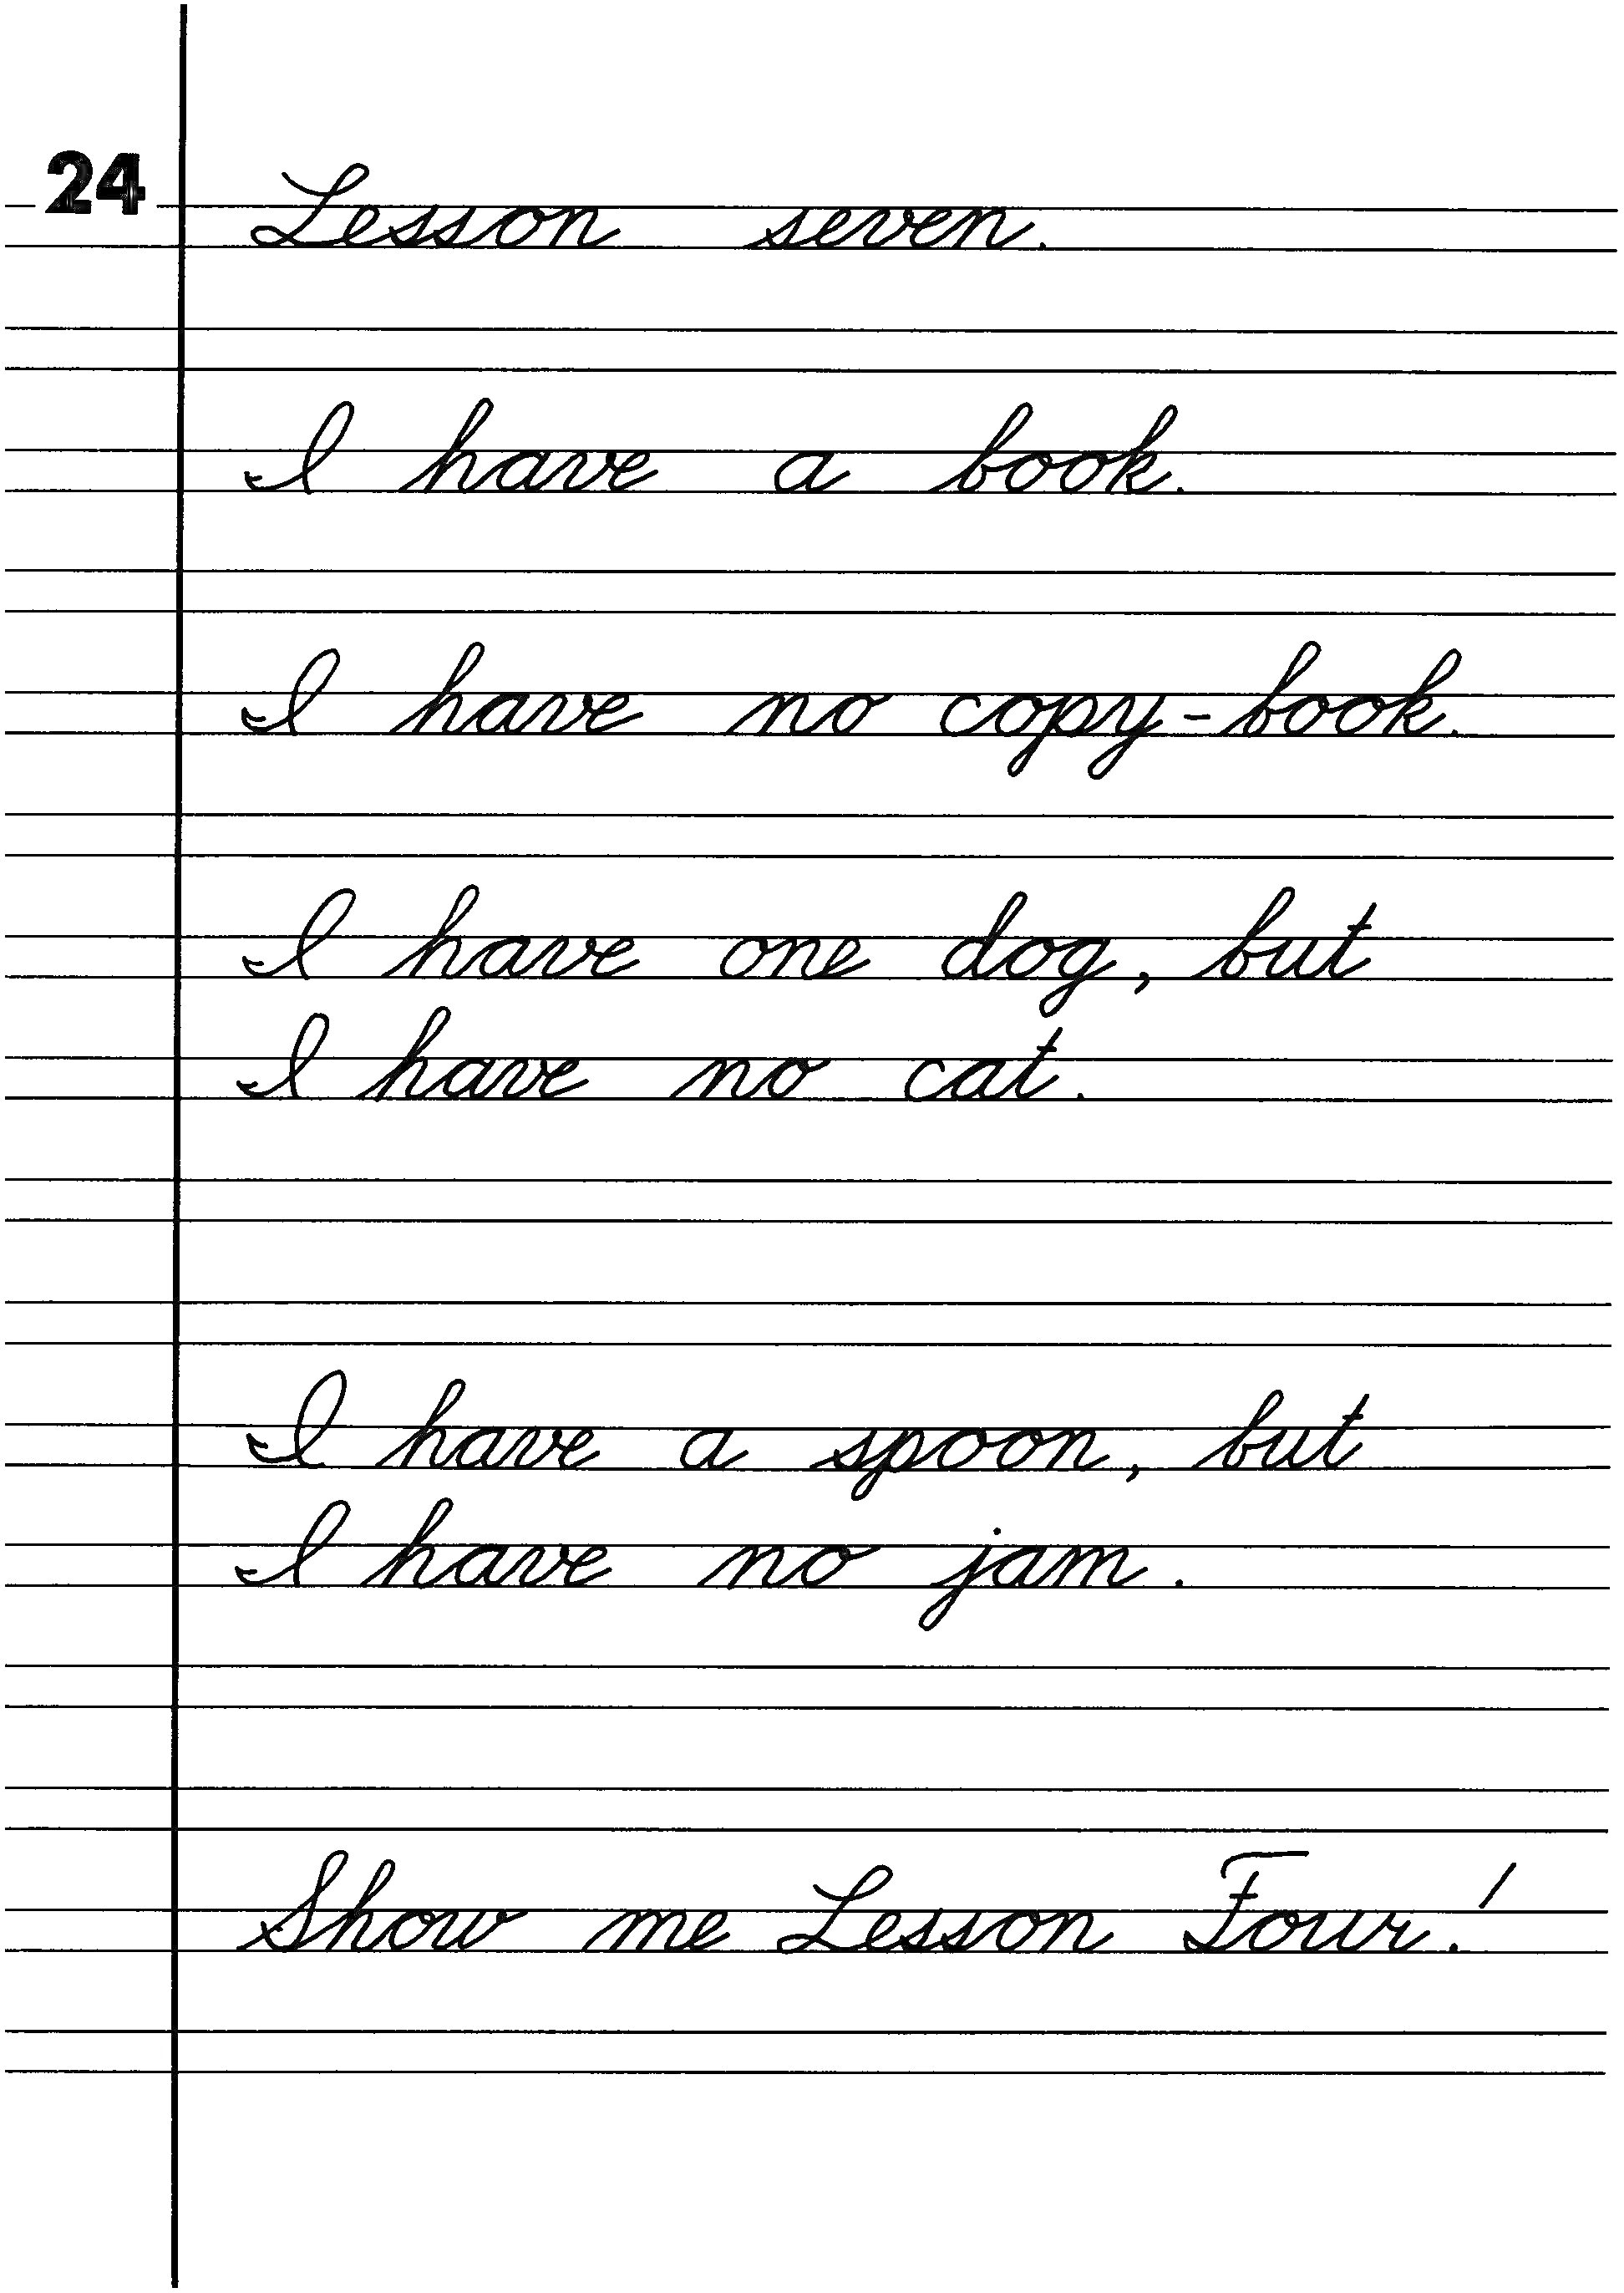 24
Lesson seven.
I have a book.
I have no copy-book.
I have one dog, but
I have no cat.
I have a spoon, but
I have no jam.
Show me Lesson Four!